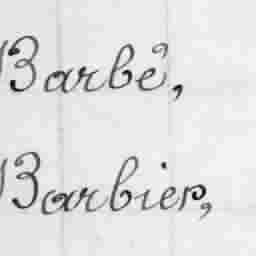 Barbé,
Barbier,